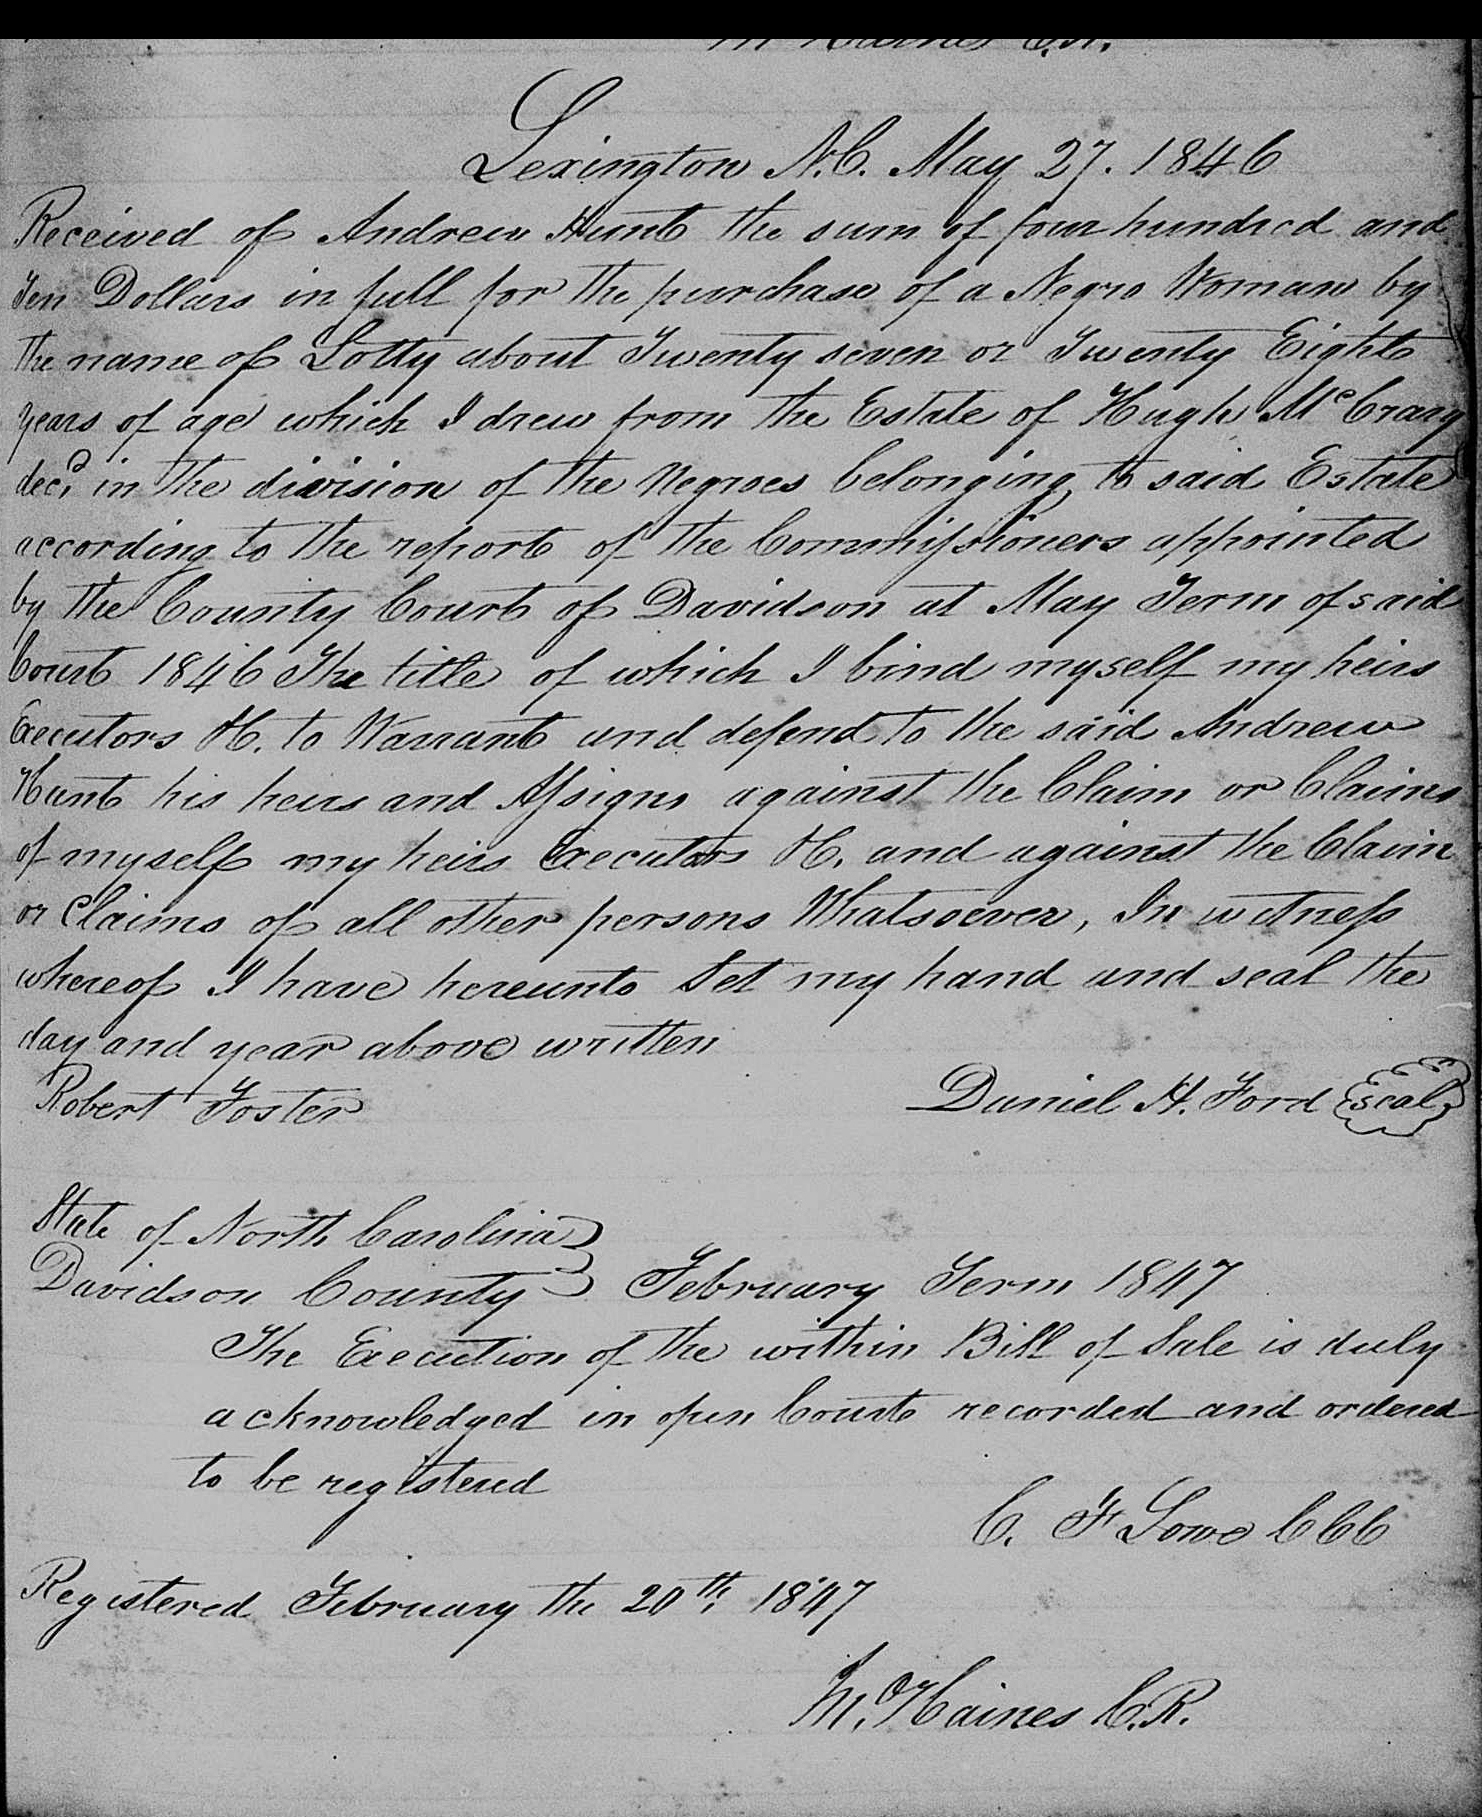 Haines C.R.
Lexington N.C. May 27. 1846
Received of Andrew Hunt the sum of four hundred and
Ten Dollars in full for the purchase of a Negro Woman by
the name of Lotty about Twenty seven or Twenty Eight
years of age which I drew from the Estate of Hugh McCrary
decd. in the division of the Negroes belonging to said Estate
according to the report of the Commissioners appointed
by the County Court of Davidson at May Term of said
Court 1846 The title of which I bind myself my heirs
Executors &C. to Warrant and defend to the said Andrew
Hunt his heirs and Assigns against the Claim or Claims
of myself my heirs Executors &C. and against the Claim
or Claims of all other persons Whatsoever, In witness
whereof I have hereunto Set my hand and seal the
day and year above written
Robert Foster Daniel H. Ford seal
State of North Carolina
Davidson County February Term 1847
The Execution of the within Bill of Sale is duly
acknowledged in open Court recorded and ordered
to be registered
C. F Lowe CCC
Registered February the 20th, 1847
M. Haines C.R.